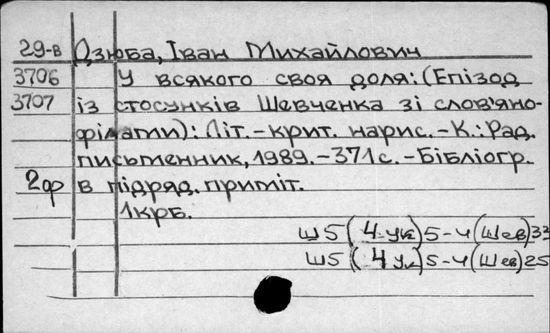 29-в Дзюба, Іван Михайлович
3706 У всякого своя доля: (Епізод
3707 із стосунків Шевченка зі слов'яно-
філами): Літ.-крит. нарис.-К.: Рад.
письменник, 1989.-371с.-Бібліогр.
2ор в підряд. приміт.
1крб.
Ш5(4Ук)5-4(Шев)33
Ш5(4Ук)5-4(Шев)25